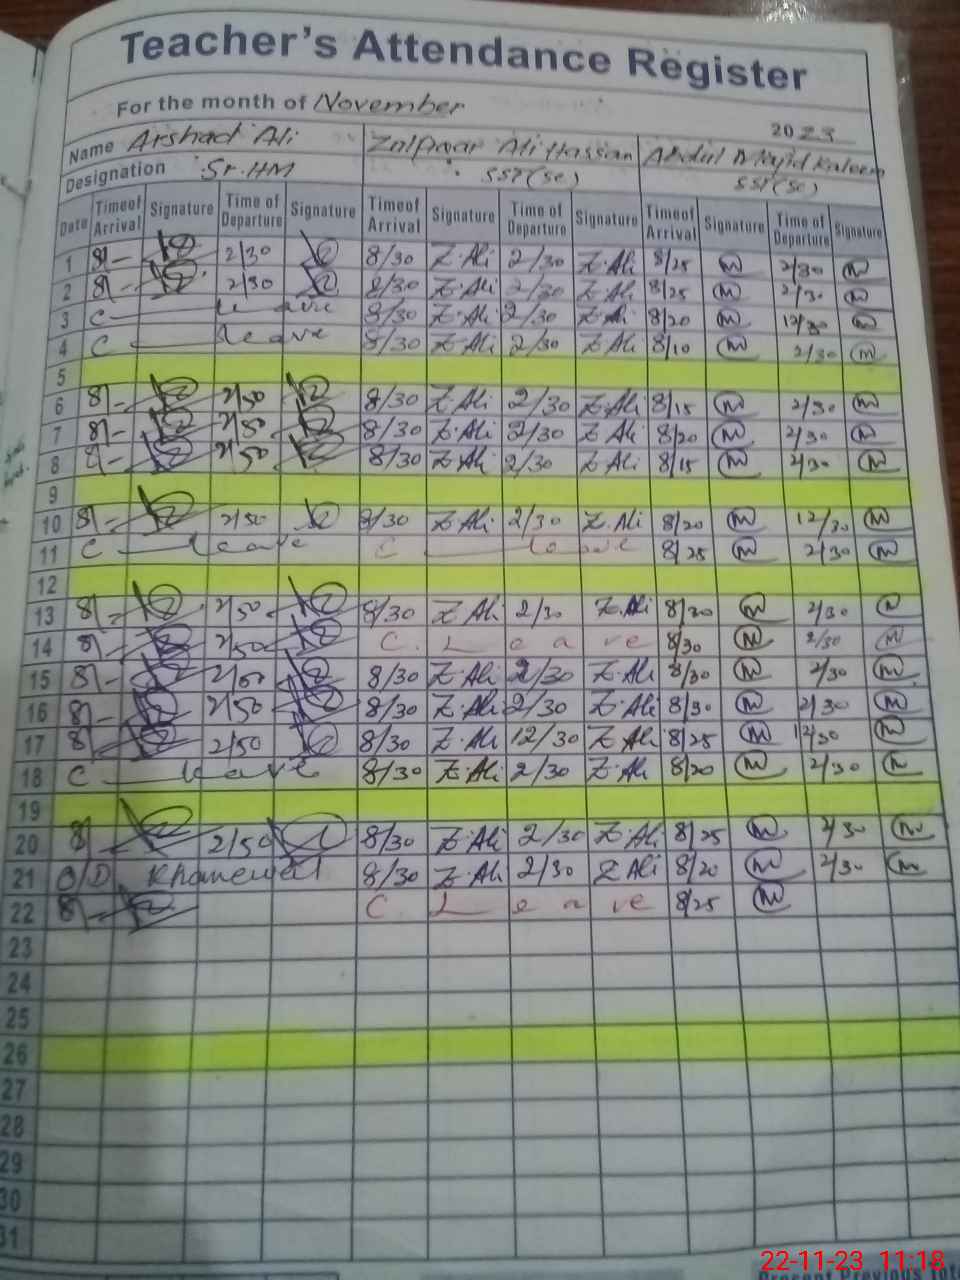 Teacher's Attendance Register
For the month of November 2023
Name Arshad Ali Ali Hassan Abdul Majid Kaleem
Designation Sr. HM SST(Sc) SST(Sc)
Date Time of Arrival Signature Time of Departure Signature Time of Arrival Signature Time of Departure Signature Time of Arrival Signature Time of Departure Signature
1 8/- 2/30 8/30 Z.Ali 2/30 Z.Ali 8/25 M 2/30 M
2 8/- 2/30 8/30 Z.Ali 2/30 Z.Ali 8/25 M 2/30 M
3 C leave 8/30 Z.Ali 2/30 Z.Ali 8/20 M 12/30 M
4 C leave 8/30 Z.Ali 2/30 Z.Ali 8/10 M 2/30 M
5
6 8/- 2/50 8/30 Z.Ali 2/30 Z.Ali 8/15 M 2/30 M
7 8/- 2/50 8/30 Z.Ali 2/30 Z.Ali 8/20 M 2/30 M
8 8/- 2/50 8/30 Z.Ali 2/30 Z.Ali 8/15 M 2/30 M
9
10 8/- 2/50 8/30 Z.Ali 2/30 Z.Ali 8/20 M 12/30 M
11 C leave C leave 8/25 M 2/30 M
12
13 8/- 2/50 8/30 Z.Ali 2/30 Z.Ali 8/30 M 2/30 M
14 8/- 2/50 C. Leave 8/30 M 2/30 M
15 8/- 2/50 8/30 Z.Ali 2/30 Z.Ali 8/30 M 2/30 M
16 8/- 2/50 8/30 Z.Ali 2/30 Z.Ali 8/30 M 2/30 M
17 8/- 2/50 8/30 Z.Ali 12/30 Z.Ali 8/25 M 12/30 M
18 C leave 8/30 Z.Ali 2/30 Z.Ali 8/20 M 2/30 M
19
20 8/- 2/50 8/30 Z.Ali 2/30 Z.Ali 8/25 M 2/30 M
21 O/D Khanewal 8/30 Z.Ali 2/30 Z.Ali 8/20 M 2/30 M
22 8/- C. Leave 8/25 M
23
24
25
26
27
28
29
30
31
22-11-23 11:18